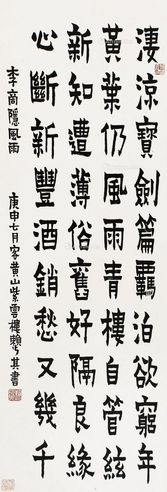 淒涼寶劍篇羈泊欲窮年
黃葉仍風雨青樓自管絃
新知遭薄俗舊好隔良緣
心斷新豐酒銷愁又幾千
李商隱風雨
庚申七月客黃山紫雲樓賴少其書